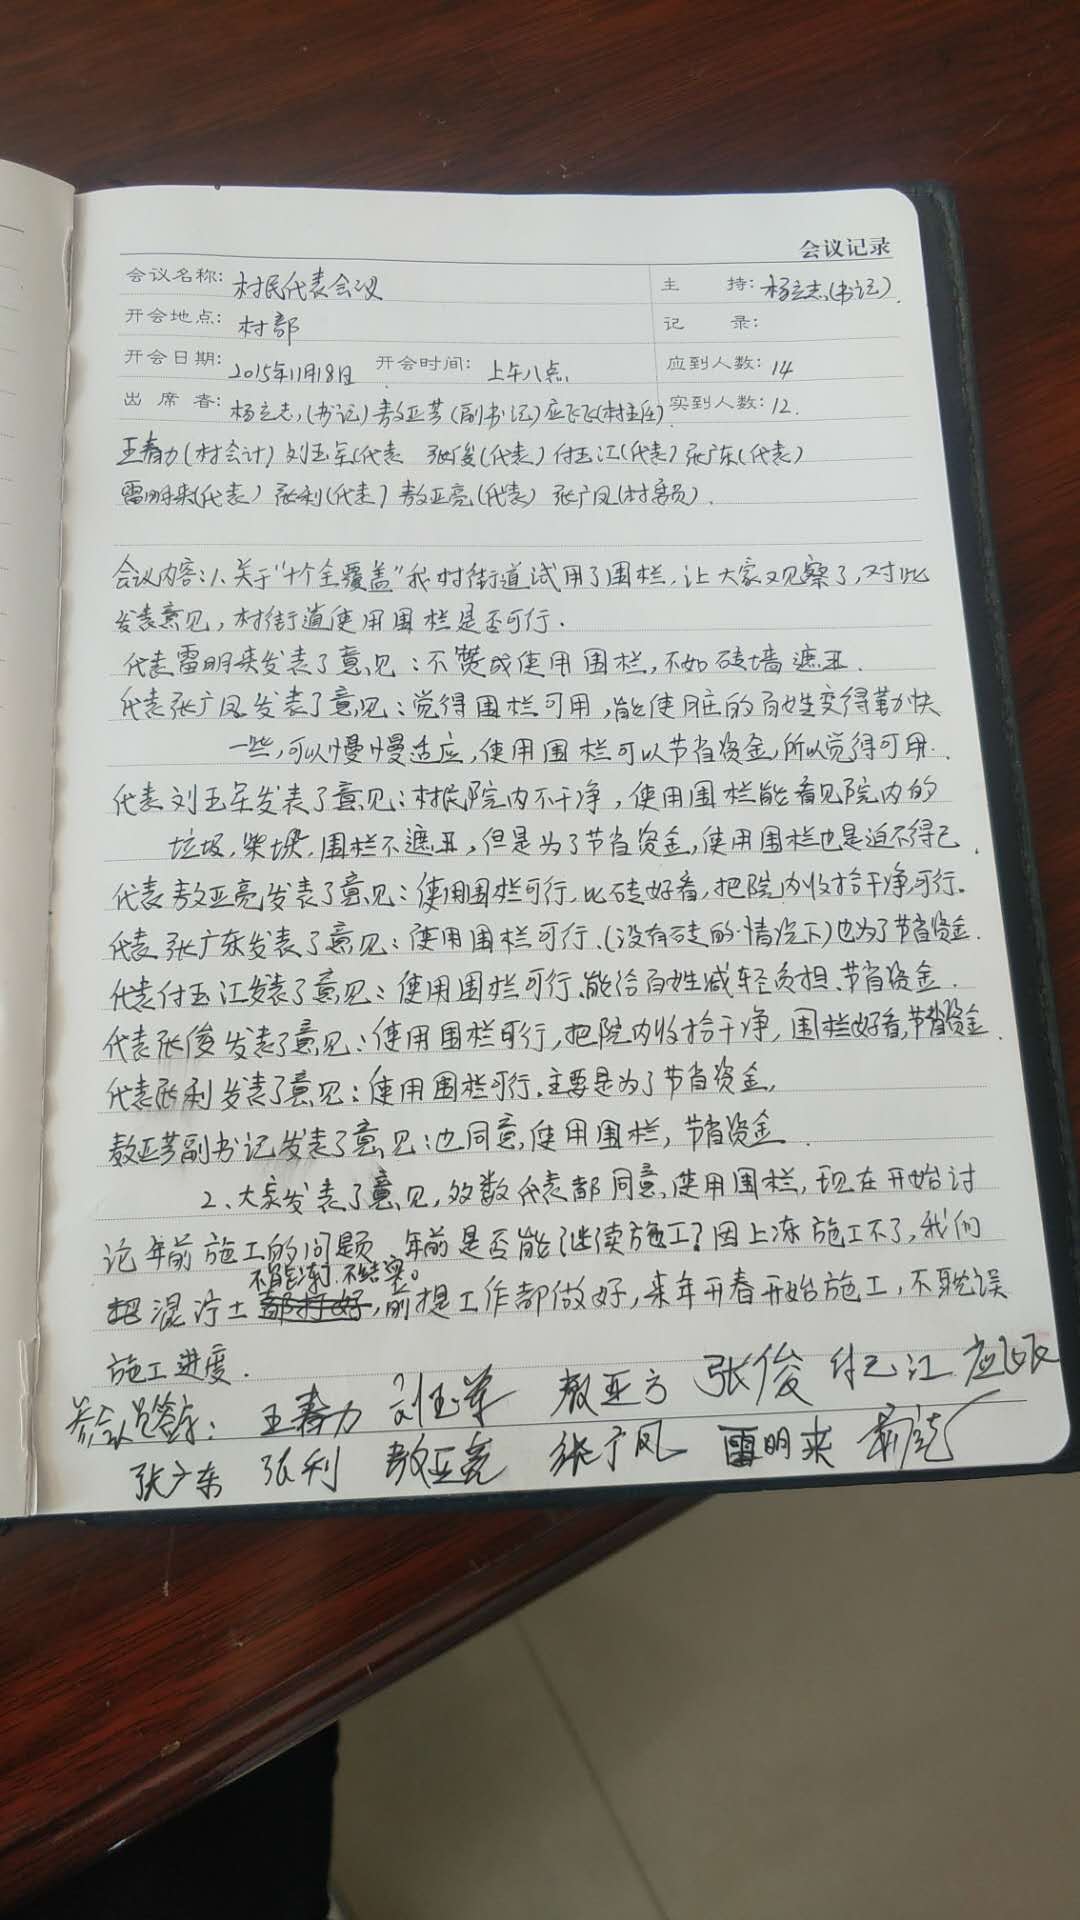 会议记录
会议名称: 村民代表会议 主 持: 杨立志(书记).
开会地点: 村部 记 录:
开会日期: 2015年11月18日 开会时间: 上午八点. 应到人数: 14
出 席 者: 杨立志,(书记) 敖亚芳(副书记) 应飞飞(村主任) 实到人数: 12.
王春力(村会计) 刘玉军(代表 张俊(代表) 付玉江(代表) 张广东(代表)
雷明来(代表) 张利(代表) 敖亚亮(代表) 张广凤(村委员).
会议内容:1、关于“十个全覆盖”我村街道试用了围栏,让大家观察了,对此
发表意见,村街道使用围栏是否可行.
代表雷明来发表了意见:不赞成使用围栏,不如砖墙遮丑.
代表张广凤发表了意见:觉得围栏可用,能使脏的百姓变得勤快
一些,可以慢慢适应,使用围栏可以节省资金,所以觉得可用.
代表刘玉军发表了意见:村民院内不干净,使用围栏能看见院内的
垃圾,柴垛,围栏不遮丑,但是为了节省资金,使用围栏也是迫不得已.
代表敖亚亮发表了意见:使用围栏可行,比砖好看,把院内收拾干净,可行.
代表张广东发表了意见:使用围栏可行、(没有砖的情况下)也为了节省资金.
代表付玉江发表了意见:使用围栏可行、能给百姓减轻负担、节省资金.
代表张俊发表了意见:使用围栏可行,把院内收拾干净,围栏好看,节省资金.
代表张利发表了意见:使用围栏可行.主要是为了节省资金,
敖亚芳副书记发表了意见:也同意使用围栏,节省资金.
2、大家发表了意见,数代表都同意使用围栏,现在开始讨
论年前施工的问题,年前是否能继续施工?因上冻施工不了,我们
不能冻了,不结实。
把混泞土都打好,前提工作都做好,来年开春开始施工,不耽误
施工进度.
参会人员签字: 王春力 刘玉军 敖亚方 张俊 付玉江 应飞飞
张广东 张利 敖亚亮 张广凤 雷明来